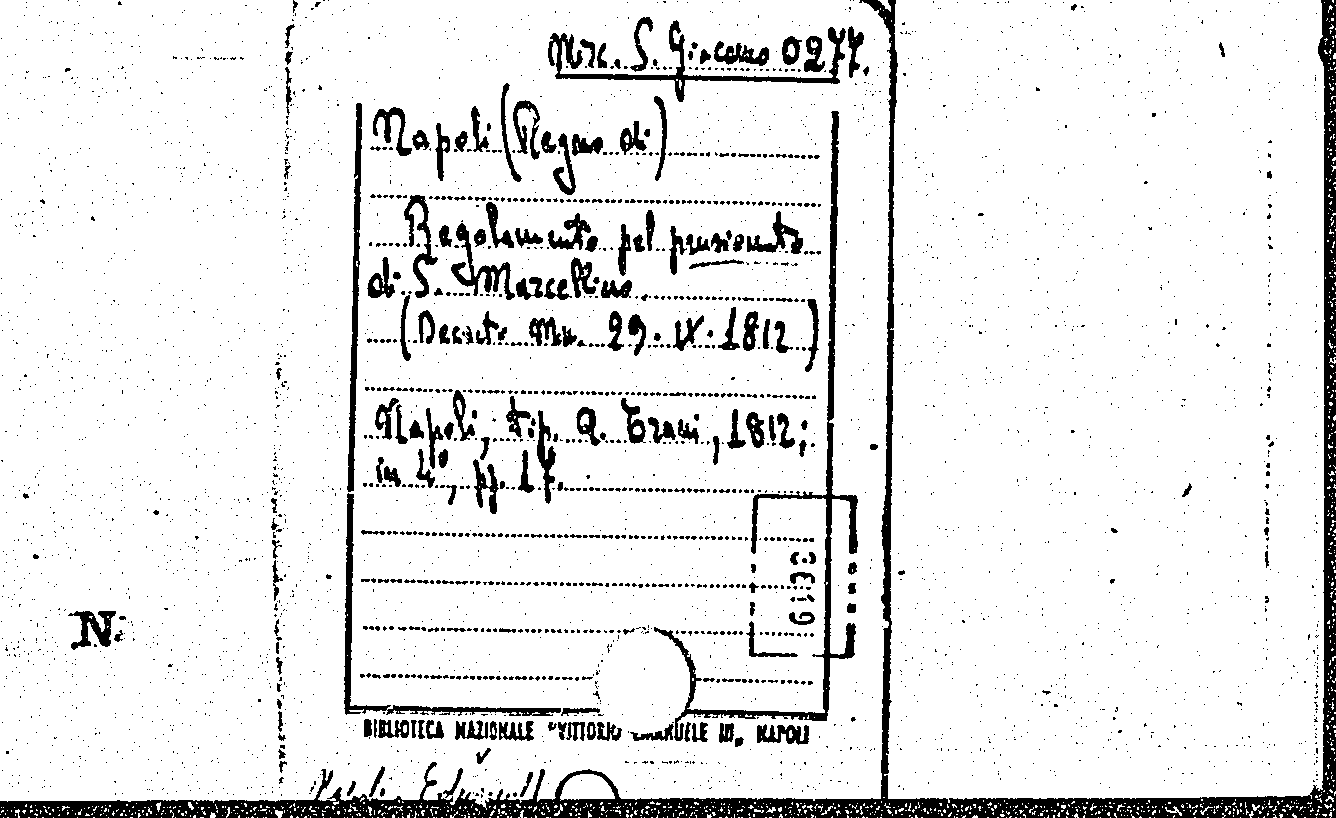 Misc. S. Giacomo 0277.
Napoli (Regno di)
Regolamento pel pensionato
di S. Marcellino.
(Decreto Min. 29. IX. 1812)
Napoli, tip. A. Trani, 1812;
in 4°, pp. 17.
N.
BIBLIOTECA NAZIONALE "VITTORIO EMANUELE III„ NAPOLI